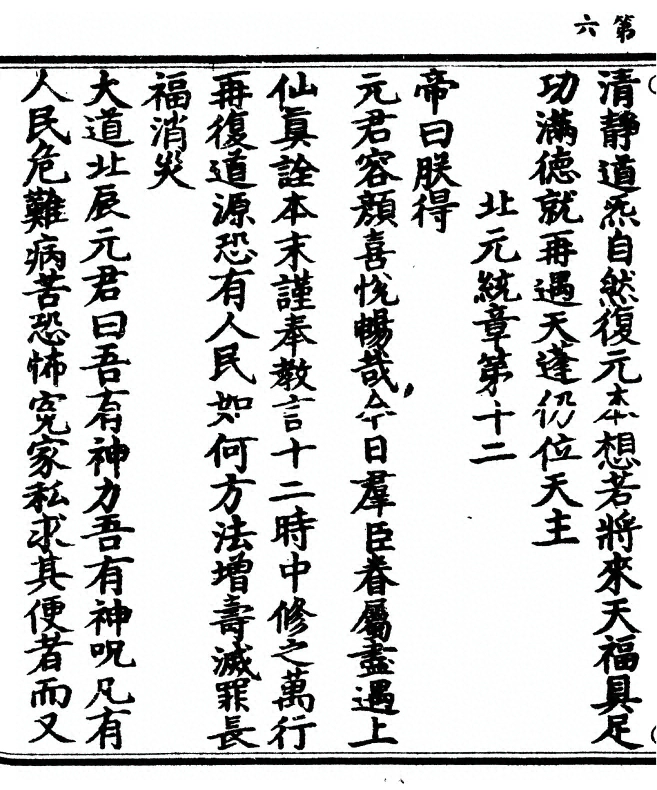 第六
清靜道炁自然復元本想若將來天福具足
功滿德就再遇天蓬仍位天主
北元統章第十二
帝曰朕得
元君容顏喜悅暢哉今日羣臣眷屬盡遇上
仙眞詮本末謹奉教言十二時中修之萬行
再復道源恐有人民如何方法增壽滅罪長
福消災
大道北辰元君曰吾有神力吾有神呪凡有
人民危難病苦恐怖寃家私求其便者而又